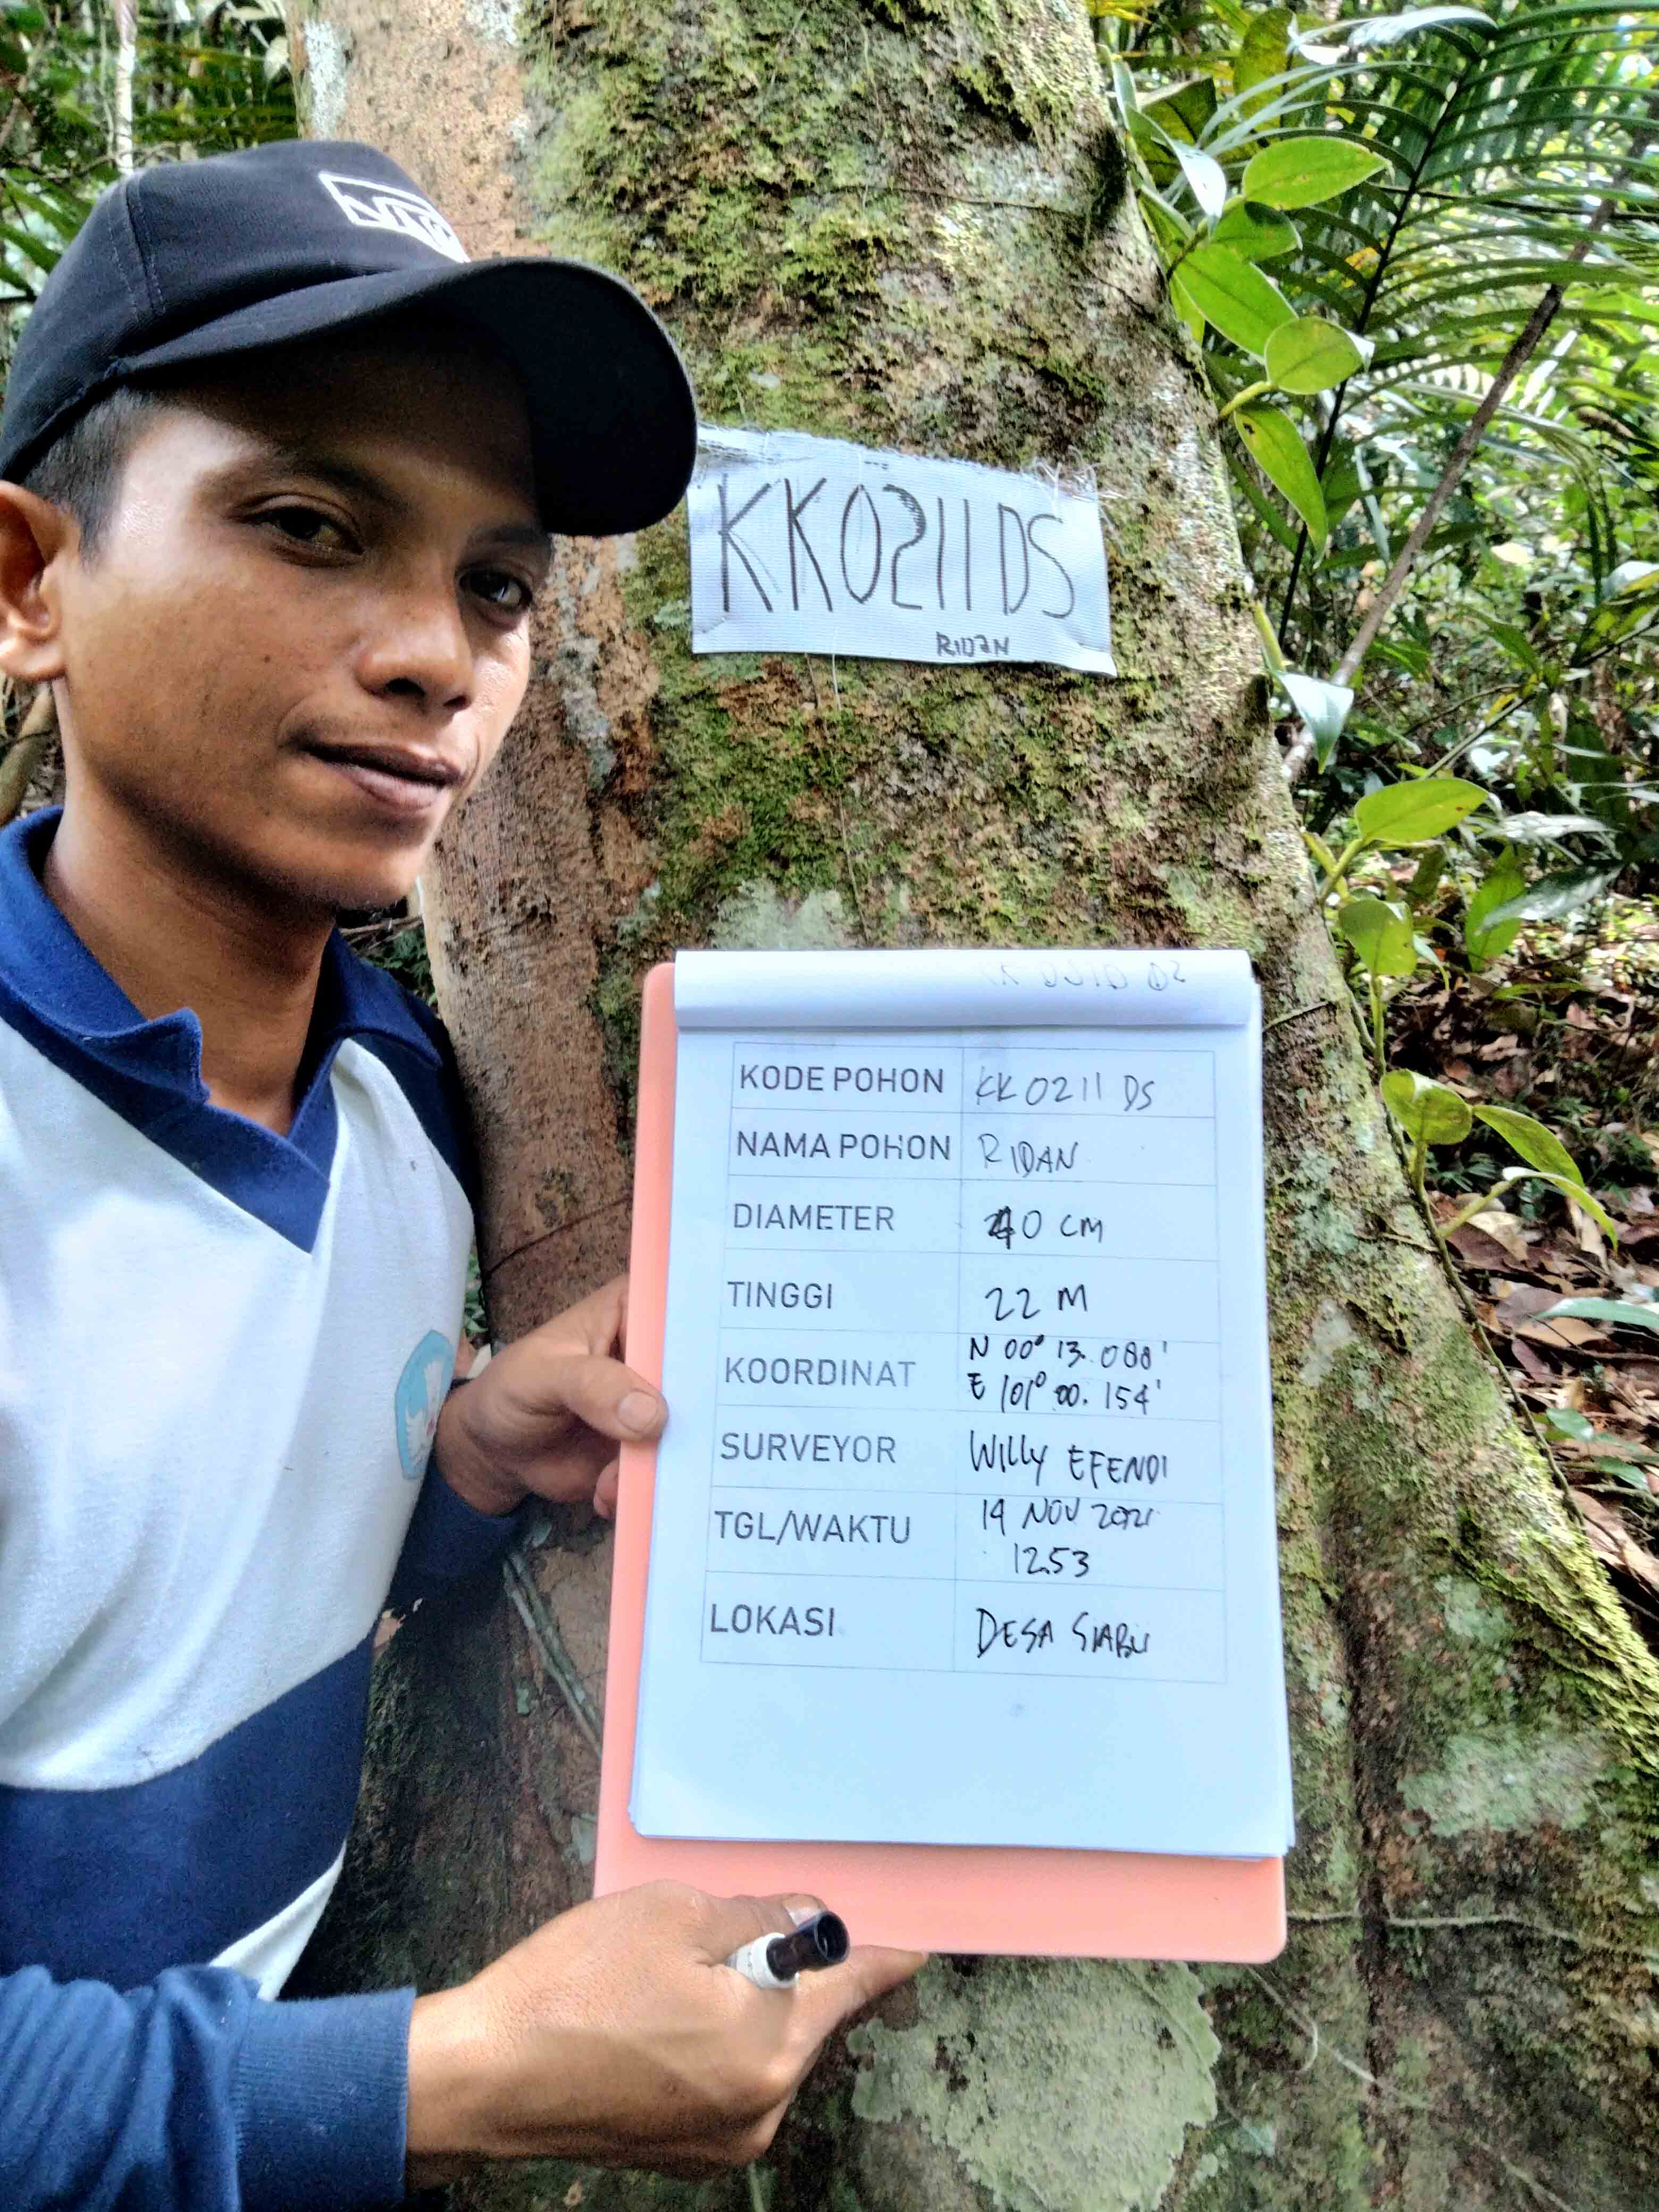 KK0211 DS
RIDAN
KODE POHON KK0211 DS
NAMA POHON RIDAN
DIAMETER 40 CM
TINGGI 22 M
KOORDINAT N 00° 13. 088'
E 101° 00. 154'
SURVEYOR WILLY EFENDI
TGL/WAKTU 14 NOV 2021
12.53
LOKASI DESA SIABU